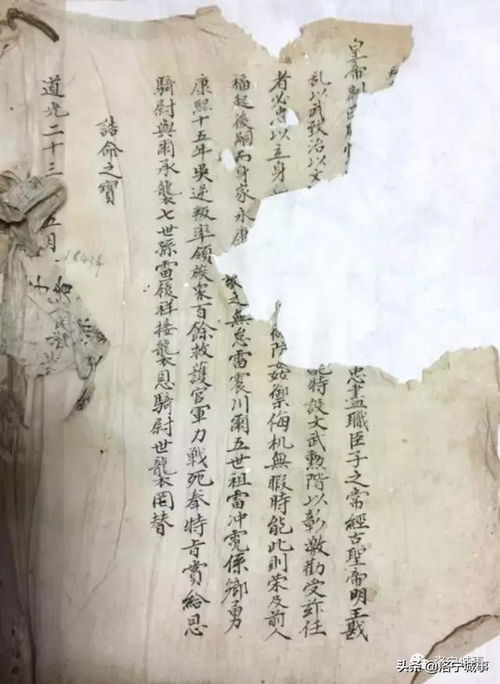 皇帝制曰 忠盡職臣子之常經古聖帝明王戡
亂以武致治以文 能特設文武勳階以彰激勸受玆任
者必忠以立身 防姦禦侮机無暇時能此則荣及前人
福起後嗣而身家永康 之無怠雷震川爾五世祖雷冲霓係鄉勇
康熙十五年吳逆叛率領族衆百餘救護官軍力戰死奉特旨賞給恩
騎尉與爾承襲七世孫雷履祥接襲恩騎尉世襲罔替
誥命之寶
道光二十三 五月
洛宁城事
头条 @洛宁城事